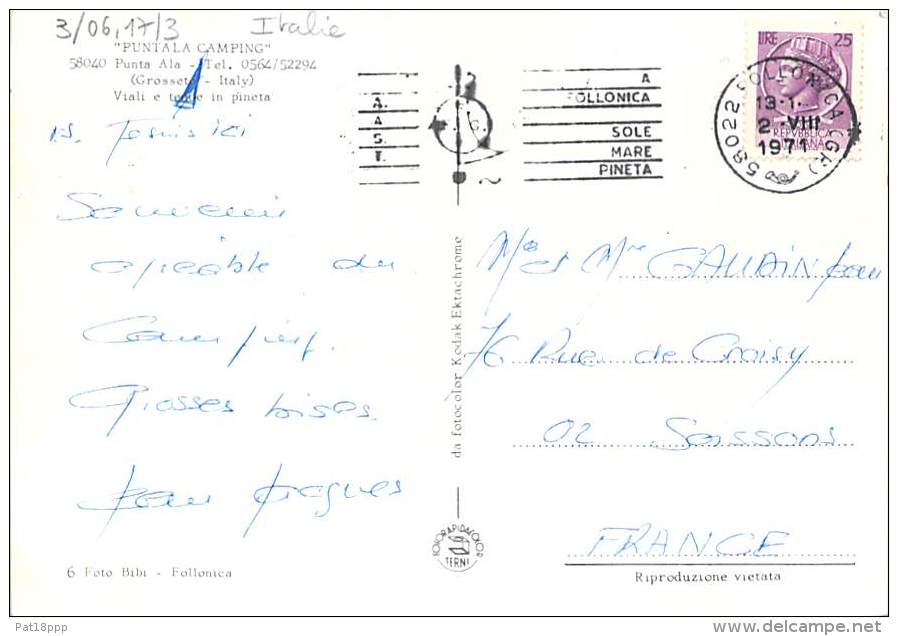 3/06,17/3 Italie
"PUNTALA CAMPING"
58040 Punta Ala - Tel. 0564/52294
(Grosseto - Italy)
Viali e tende in pineta
Souvenir
agréable du
Camping.
Grosses bises.
Jean Jacques
6 Foto Bibi - Follonica
A.
A.
S.
T.
A
FOLLONICA
SOLE
MARE
PINETA
LIRE 25
REPVBBLICA
ITALIANA
58022 FOLLONICA (GR)
13-1
2 -VIII
1971
da fotocolor Kodak Ektachrome
FOTORAPIDACOLOR
TERNI
Mr et Mme GAUDIN Jean
76 Rue de Croisy
02 Soissons
FRANCE
Riproduzione vietata
Pat18ppp
www.delcampe.net